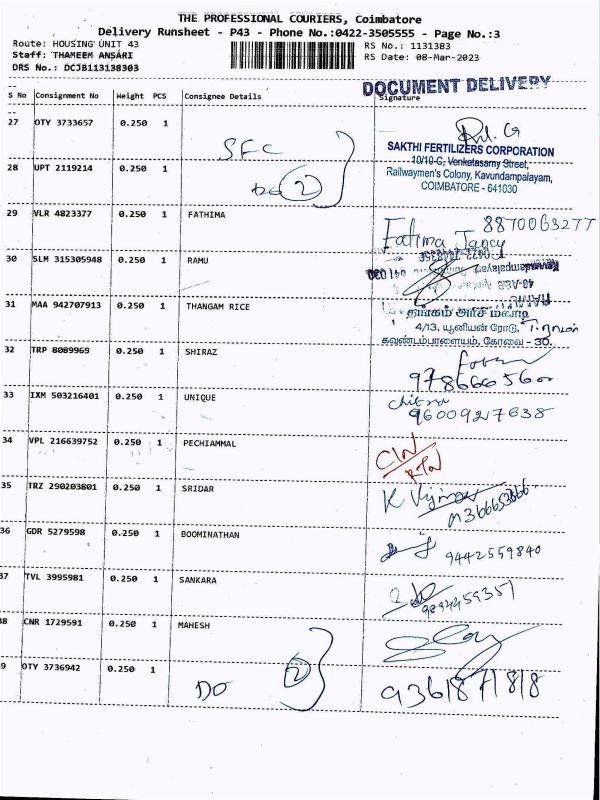 THE PROFESSIONAL COURIERS, Coimbatore
Delivery Runsheet - P43 - Phone No.:0422-3505555 - Page No.:3
Route: HOUSING UNIT 43 RS No.: 1131383
Staff: THAMEEM ANSARI RS Date: 08-Mar-2023
DRS No.: DCJB113138303
DOCUMENT DELIVERY
S No Consignment No Weight PCS Consignee Details Signature
27 OTY 3733657 0.250 1 SFC
SAKTHI FERTILIZERS CORPORATION
10/10-C, Venkatasamy Street,
28 UPT 2119214 0.250 1 2
Railwaymen's Colony, Kavundampalayam,
COIMBATORE - 641030
29 VLR 4823377 0.250 1 FATHIMA 8870063277
Fatima Jancy
30 SLM 315305948 0.250 1 RAMU
31 MAA 942707913 1 0.250 THANGAM RICE
தங்கம் அரிசி மண்டி
4/13, யூனியன் ரோடு,
கவுண்டம்பாளையம், கோவை - 30.
32 TRP 8089969 0.250 1 SHIRAZ
33 IXM 503216401 0.250 1 UNIQUE Chitra
9600927638
34 VPL 216639752 0.250 1 PECHIAMMAL
35 TRZ 290203801 0.250 1 SRIDAR
36 GDR 5279598 0.250 1 BOOMINATHAN 9442559840
37 TVL 3995981 0.250 1 SANKARA
38 CNR 1729591 0.250 1 MAHESH
39 OTY 3736942 0.250 1 DO 2 9361871818